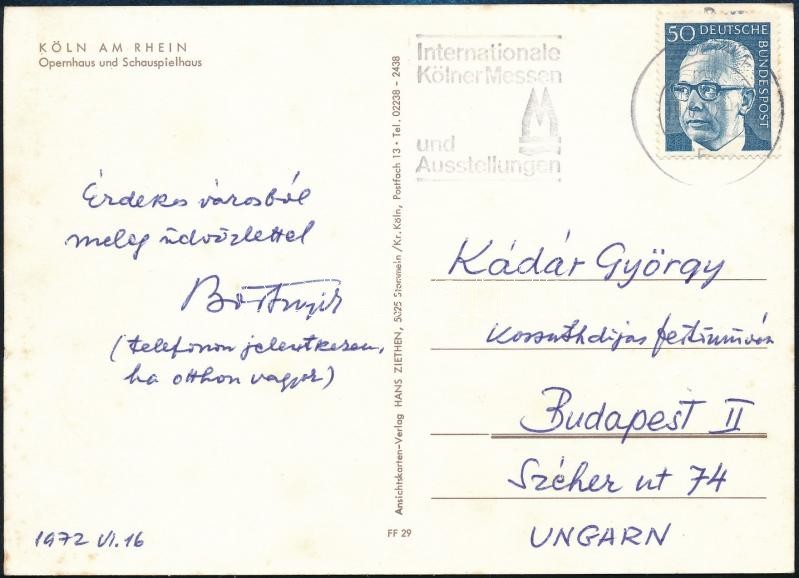 KÖLN AM RHEIN
Opernhaus und Schauspielhaus
Érdekes városból
meleg üdvözlettel
(telefonon jelentkezem,
ha otthon vagyok)
1972 VI. 16
Ansichtskarten-Verlag HANS ZIETHEN, 5025 Stommeln/Kr. Köln, Postfach 13 · Tel. 02238 - 2438
FF 29
Internationale
Kölner Messen
und
Ausstellungen
50 DEUTSCHE
BUNDESPOST
Kádár György
Kossuthdíjas festőművész
Budapest II
Szécher ut 74
UNGARN